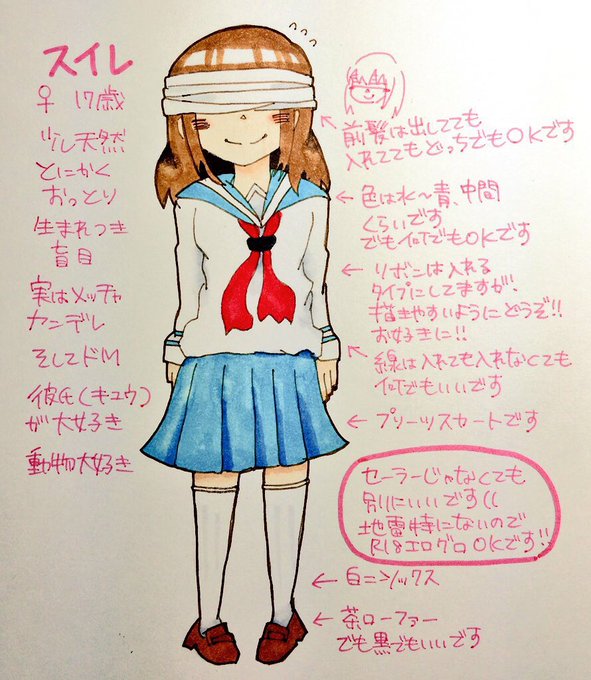 スイレ
♀ 17歳
少し天然
とにかく
おっとり
生まれつき
盲目
実はメッチャ
ヤンデレ
そしてドM
彼氏(キュウ)
が大好き
動物大好き
前髪は出してても
入れててもどっちでもOKです
色は水〜青、中間
くらいです
でも何でもOKです
リボンは入れる
タイプにしてますが、
描きやすいようにどうぞ!!
お好きに!!
線は入れても入れなくても
何でもいいです
プリーツスカートです
セーラーじゃなくても
別にいいです((
地雷特にないので
R18エログロOKです!!
白ニソックス
茶ローファー
でも黒でもいいです